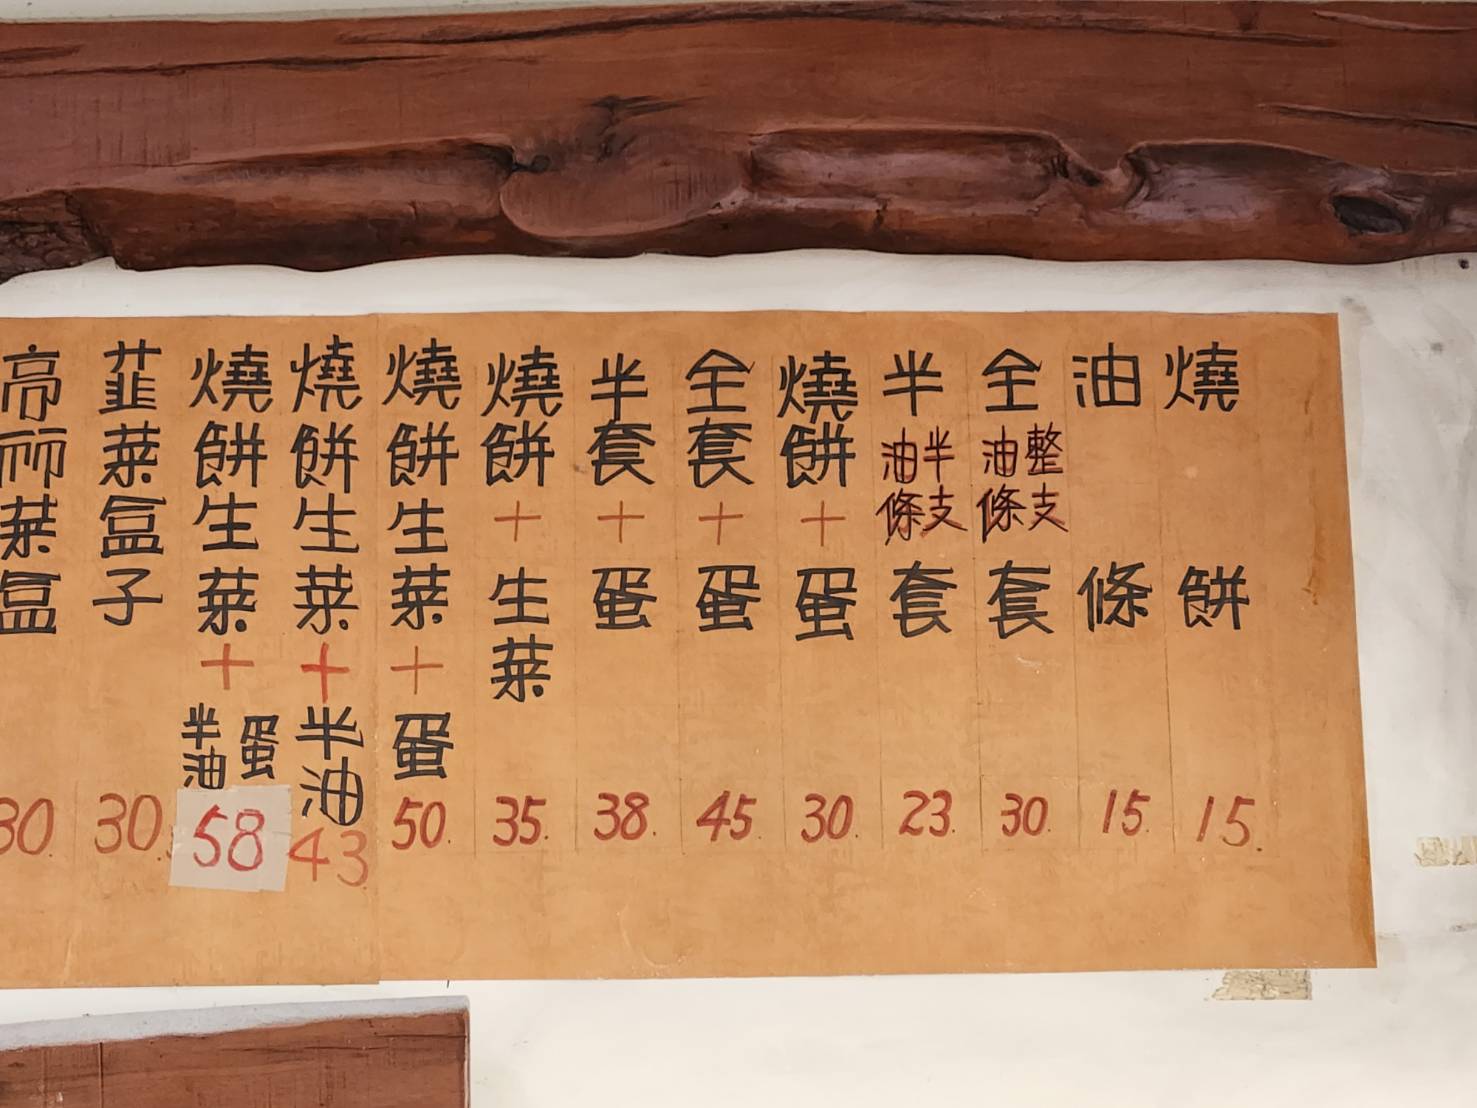 燒餅 15.
油條 15.
全套 整支油條 30.
半套 半支油條 23.
燒餅+蛋 30.
全套+蛋 45.
半套+蛋 38.
燒餅+生菜 35.
燒餅生菜+蛋 50.
燒餅生菜+半油 43.
燒餅生菜+蛋半油 58
韮菜盒子 30.
高丽菜盒 30.